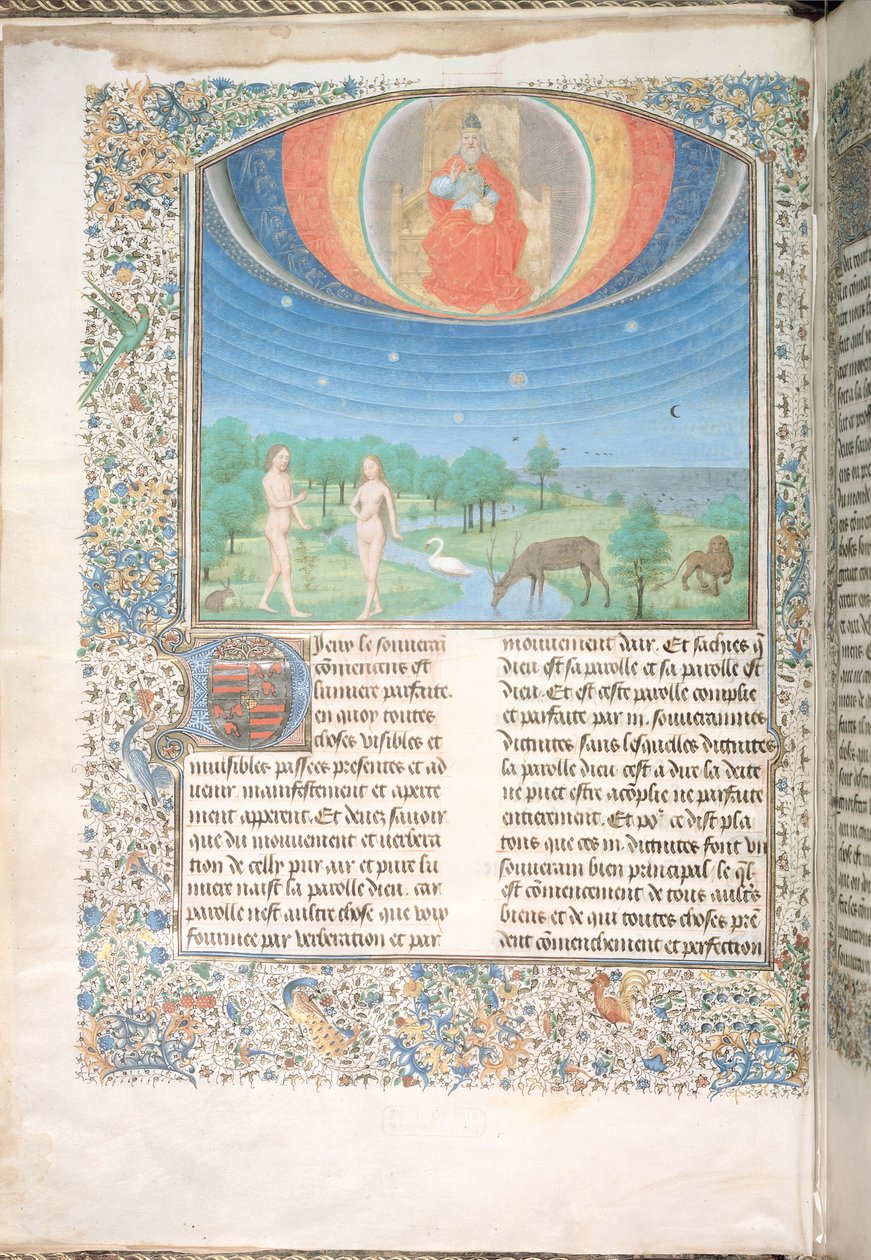 Dieu le souverain
cōmencans est
lumiere parfaite.
en quoy toutes
choses visibles et
muisibles passees presentes et ad
uenir. manifestement et aperte
ment apperent. Et deuez sauoir
que du mouuement et uerbera
tion de cellȳ pur air et pure lu
miere naist la parolle dieu. car
parolle nest aultre chose que voix
fournee par verberation et par
mouuement dair. Et sachies q̄
dieu est sa parolle et sa parolle est
dieu. Et est ceste parolle complie
et parfaite par .iii. souuerainnes
dignites sans lesquelles dignites
la parolle dieu. cest a dire la deite
ne puet estre acōplie ne parfaite
entierement. Et po᷑ ce dist pla
tons que ces .iii. dignites sont vn
souuerain bien principal. le q̄l
est cōmencement de tous aultrs
biens et de qui toutes choses prē
dent cōmenchement et perfection